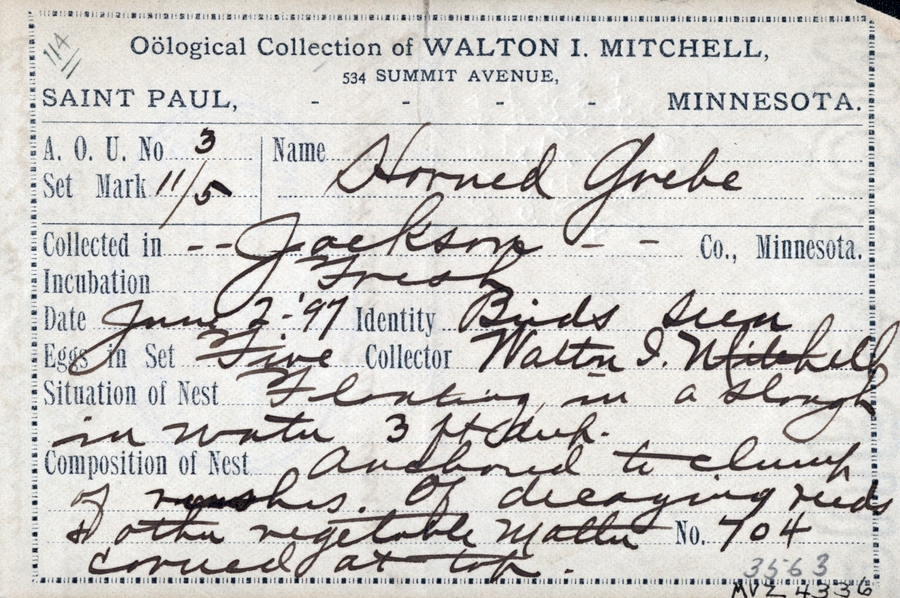 114
Oölogical Collection of WALTON I. MITCHELL,
534 SUMMIT AVENUE,
SAINT PAUL, - - - - MINNESOTA.
A. O. U. No 3 Name Horned Grebe
Set Mark 11/5
Collected in -- Jackson -- Co., Minnesota.
Incubation Fresh
Date June 2-'97 Identity Birds seen
Eggs in Set Five Collector Walton I. Mitchell
Situation of Nest Floating in a slough
in water 3 ft deep.
Composition of Nest anchored to clump
of rushes. Of decaying reeds
& other vegetable matter No. 704
at top.
3563
MVZ 4336